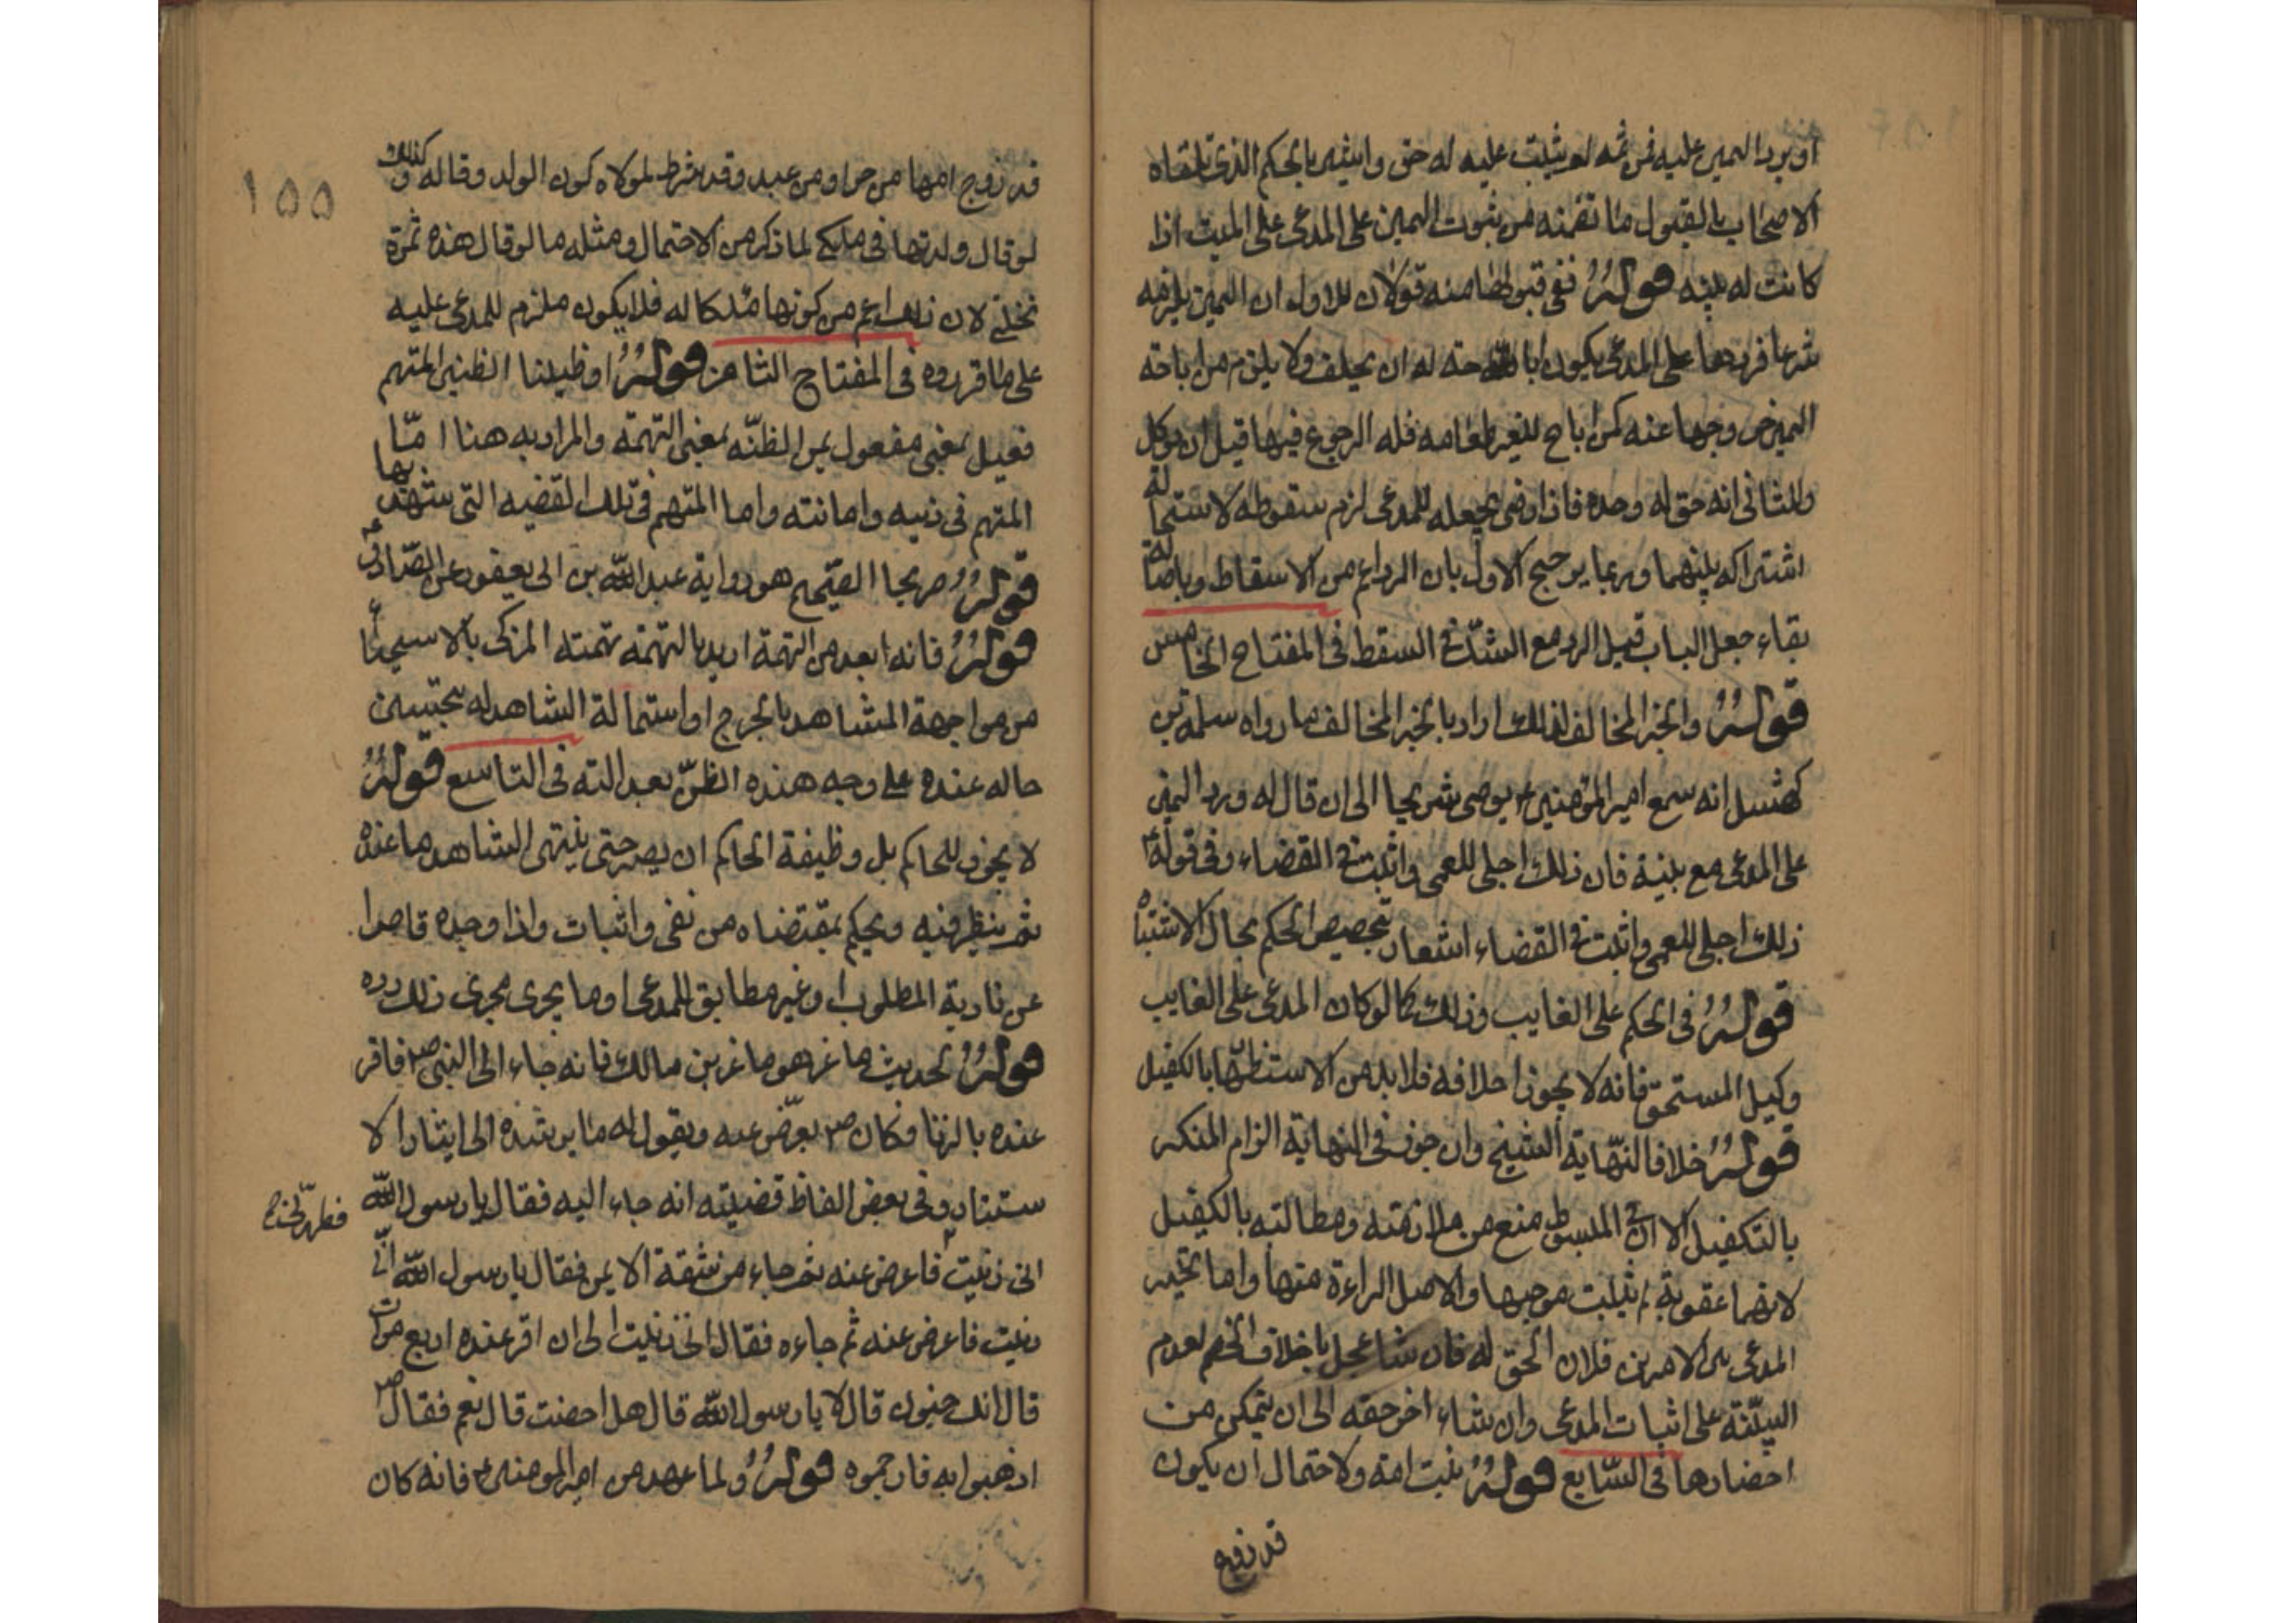 او يرد اليمين عليه فمن ثمه لم يثبت عليه له حق وانيثير بالحكم الذى تلقاه
الاصحاب بالقبول ما تضمنه من ثبوت اليمين على المدعى على الميت اذا
كانت له بينه قوله ففى قبولها منه قولان للاول ان اليمين يلزمه
شرعا فردها على المدعى يكون اباحته له ان يحلف ولا يلزم من اباحة
اليمين خروجها عنه كمن اباح للغير طعامه فله الرجوع فيها قبل ان يوكل
والثانى انه حق له وحده فاذا رضى بجعله للمدعى لزم سقوطه لاستحالة
اشتراكه بينهما وربما يرجح الاول بان الرد اعم من الاسقاط وباصالة
بقاء جعل الباب قبل الرد مع الشك فى السقط فى المفتاح الخامس
قوله والخبر المخالف لذلك اراد بالخبر المخالف ما رواه سلمه بن
كهيسل انه سمع امير المؤمنين ع يوصى شريحا الى ان قال له ورد اليمين
على المدعى مع بينة فان ذلك اجلى للعمى واثبت فى القضاء وفى قوله ع
ذلك اجلى للعمى واثبت فى القضاء اشعار بتخصيص الحكم بحال الاشتباه
قوله فى الحكم على الغايب وذلك كما لو كان المدعى على الغايب
وكيل المستحق فانه لا يجوز احلافه فلا بد من الاستظهار بالكفيل
قوله خلافا لنهاية الشيخ وان جوز فى النهاية الزام المنكر
بالتكفيل الا ان فى المبسوط منع من ملازمته ومطالبته بالكفيل
لانهما عقوبة لم يثبت موجبها والاصل البراءة منها واما تخير
المدعى بين الامرين فلان الحق له فان شا عجل باحلاف الخصم لعدم
البينة على اثبات المدعى وان شاء اخر حقه الى ان يتمكن من
احضارها فى السابع قوله بنت امة ولاحتمال ان يكون
قد زوج
١٥٥
قد زوج امها من حر او من عبد وقد شرط لمولاه كون الولد وقا له وكذلك
لو قال ولدتها فى ملكى لما ذكر من الاحتمال ومثله ما لو قال هذه ثمرة
نخلتى لان ذلك اعم من كونها ملكا له فلا يكون ملزم للمدعى عليه
على ما قرروه فى المفتاح الثامن قوله او ظنينا الظنين المتهم
فعيل بمعنى مفعول من الظنه بمعنى التهمة والمراد به هنا اما
المتهم فى دينه وامانته واما المتهم فى تلك القضيه التى يشهد بها
قوله صريحا الصحيح هو رواية عبدالله بن ابى يعفور عن الصادق ع
قوله فانه ابعد من التهمة اريد بالتهمة تهمته المزكى بالاستحيا
من مواجهة المشاهد بالجرح او استمالة الشاهد له بتحسين
حاله عنده على وجه هنده الظن بعدالته فى التاسع قوله
لا يجوز للحاكم بل وظيفة الحاكم ان يصبر حتى ينتهى الشاهد ما عنده
ثم ينظر فيه ويحكم بمقتضاه من نفى واثبات واذا وجده قاصرا
عن تادية المطلوب او غير مطابق للمدعى او ما يجرى مجرى ذلك رده
قوله لحديث ماعز هو ماعز بن مالك فانه جاء الى النبى ص فاقر
عنده بالزنا فكان ص يعرض عنه ويقول له ما يرشده الى ايثار الا
ستتار وفى بعض الفاظ قضيته انه جاء اليه فقال يا رسول الله
انى زنيت فاعرض عنه ثم جاء من شقة الايمن فقال يا رسول الله انى
زنيت فاعرض عنه ثم جاءه فقال انى زنيت الى ان اقر عنده اربع مرات
قال انك جنون قال لا يا رسول الله قال هل احصنت قال نعم فقال ص
اذهبوا به فارجموه قوله ولما عهد من امير المومنين ع فانه كان